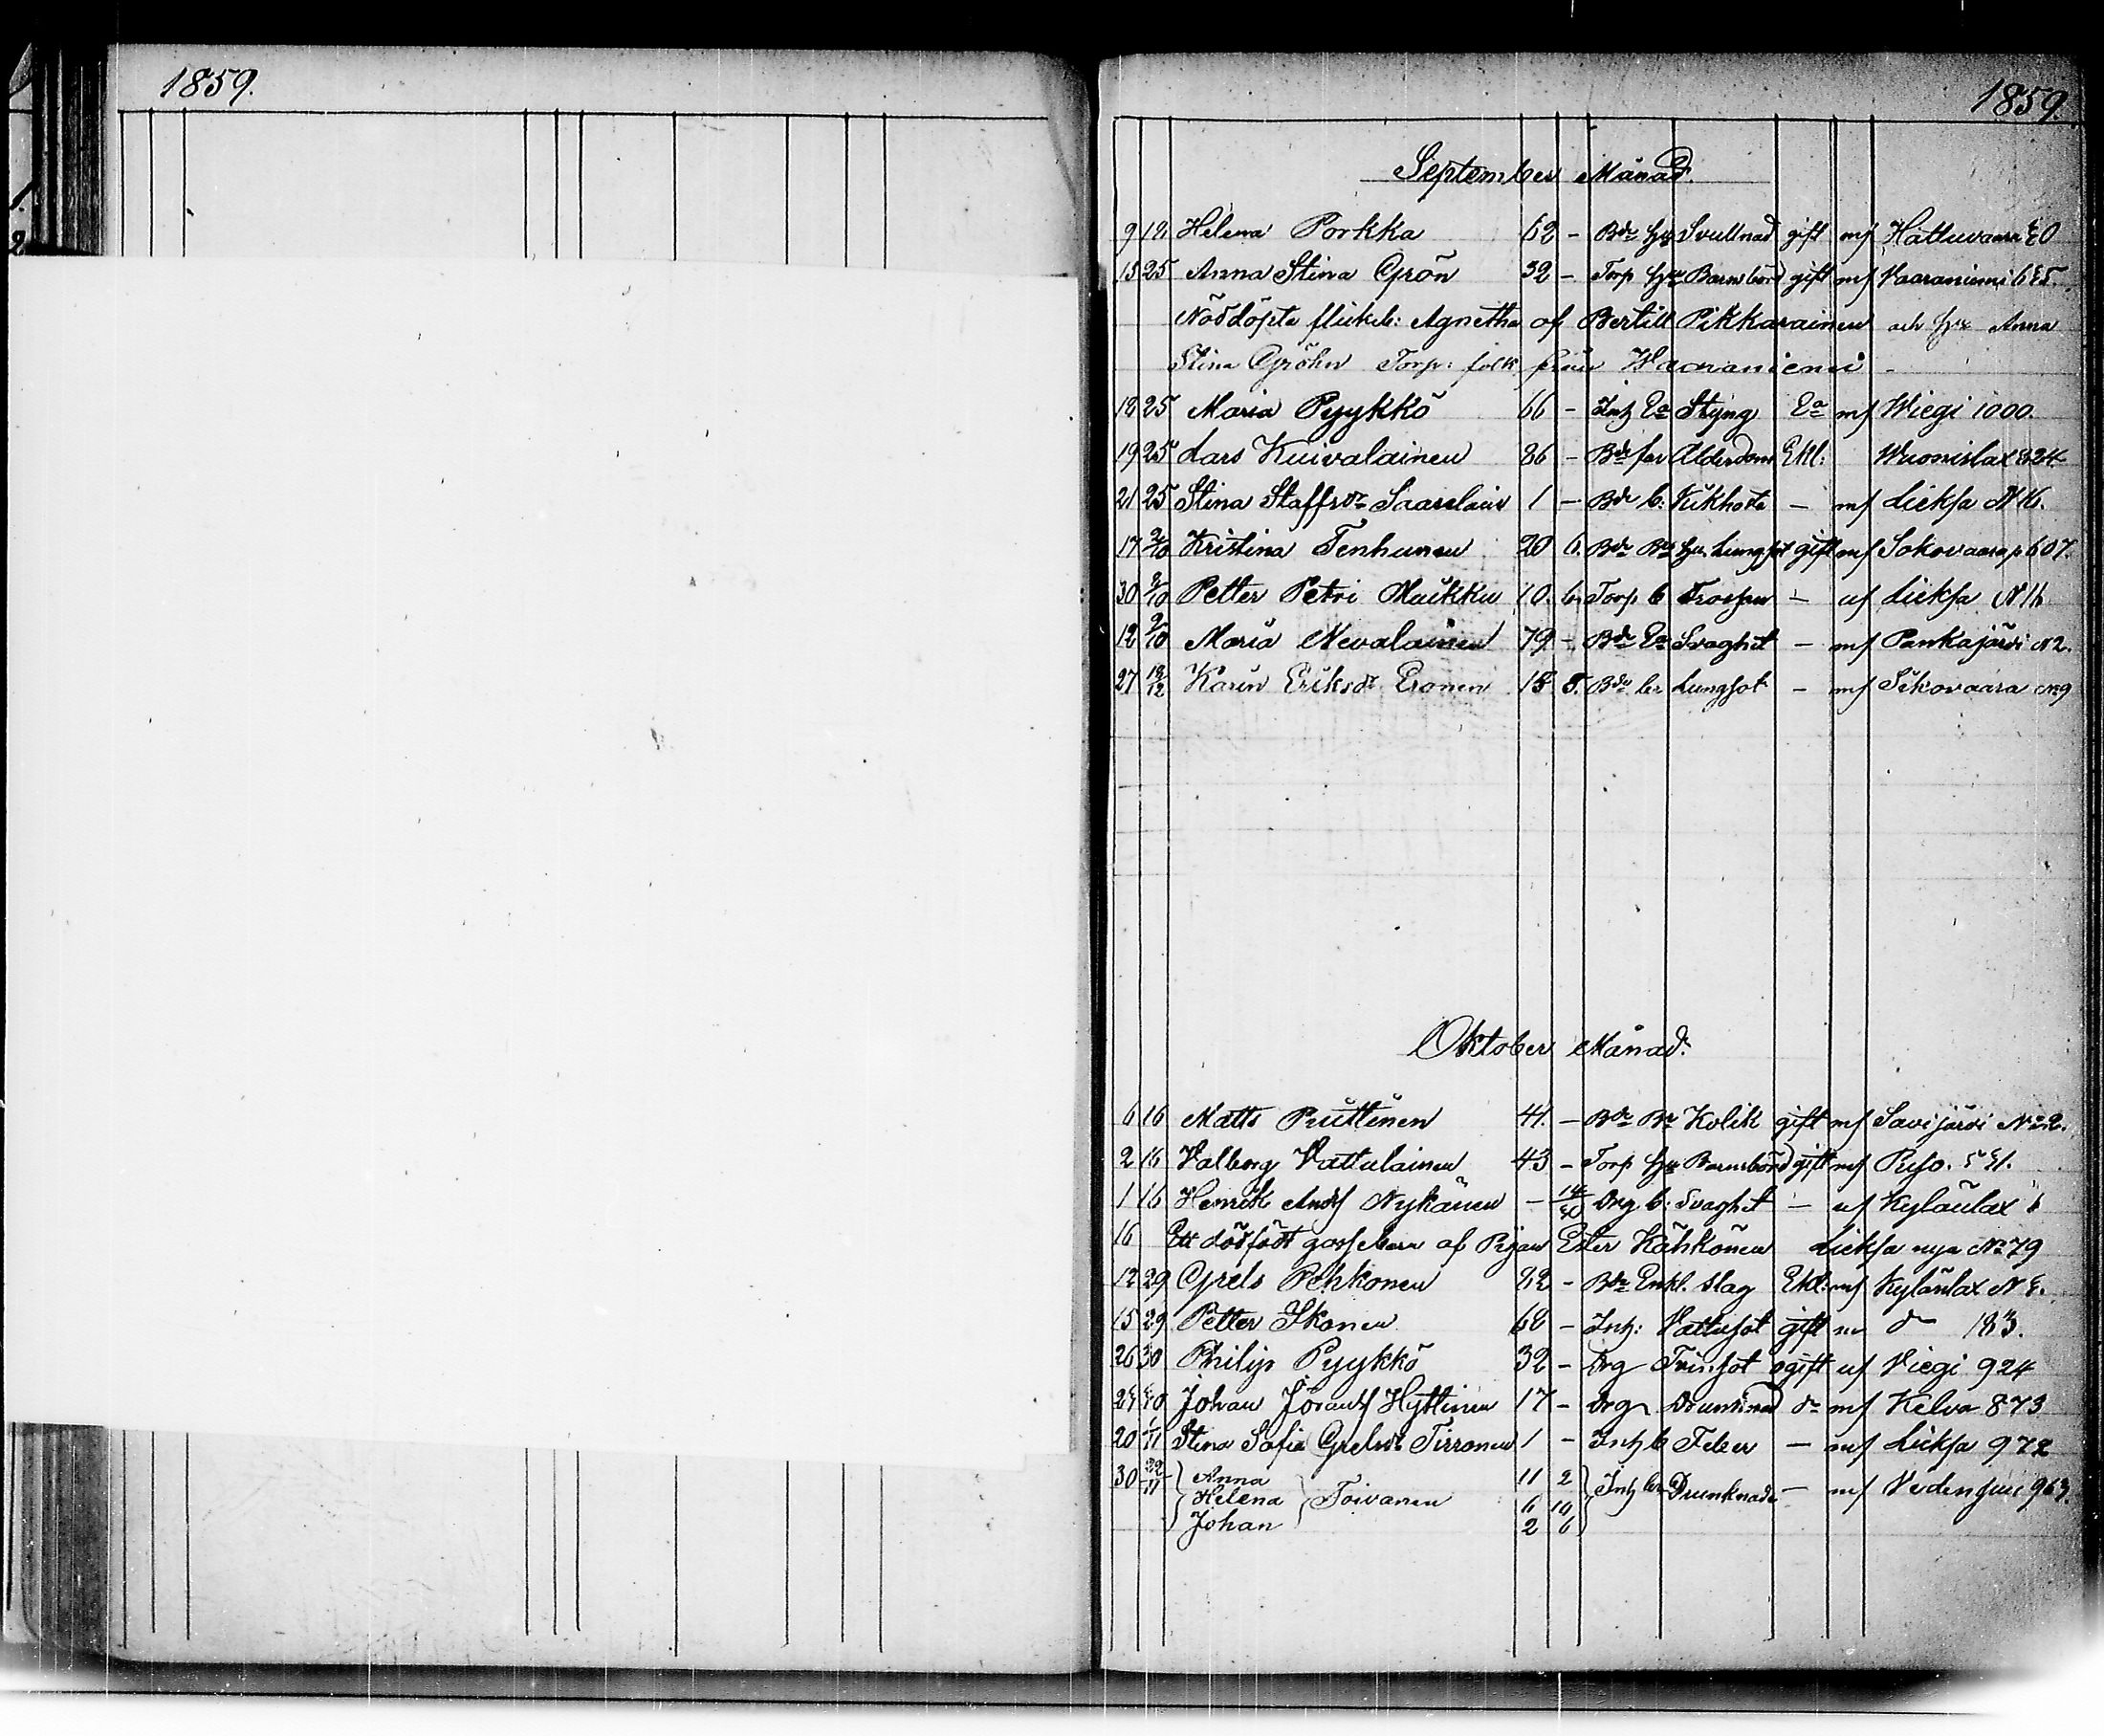 1859.
1859.
September Månad.
9 12 Helena Porkka 62 - Bde Hu Svullnad gift mf Hattuvaara 20
15 25 Anna Stina Grön 32 - Torp Hu Barnsbörd gift mf Vaaraniemi 685.
Nöddöpta flickb: Agnetha af Bertill Pikkarainen och Hu Anna
Stina Gröhn Torp: folk från Waaraniemi -
18 25 Maria Pyykkö 66 - Inh Ea Styng Ea mf Wiegi 1000.
19 25 Lars Kuivalainen 86 - Bde far Ålderdom Ekl: Wuonislax 824
21 25 Stina Staffsdr Saarelain 1 - Bde b: Kikhosta - mf Lieksa N 16.
17 2/10 Kristina Tenhunen 20 6. Bde Hu Lungsot gift mf Sokovaara 607.
30 2/10 Petter Petri Muikku 10. 6 Torp b - uf Lieksa N 16
12 9/10 Maria Nevalainen 79 - Bde Ea Svaghet - mf Pankajärvi N 2.
27 18/12 Karin Eriksdr Eronen 15 5. Bde br Lungsot - mf Sikovaara N 9
Oktober Månad.
6 16 Matts Puittinen 41. - Bde Bde Kolik gift mf Savijärvi No 2.
2 16 Valborg Vattulainen 43 - Torp Hu Barnsbörd gift mf Puso.
1 16 Henrik Andsf Nykänen - 14/30 Drg b: Svaghet - uf Kylänlax
16 Ett dödfödt gossebarn af Pigan Ester Kähkönen Lieksa nya No 79
12 29 Grels Pehkonen 82 - Bde Enkl. slag Ekl: mf Kylänlax N 8.
15 29 Petter Ikonen 68 - Inh: Vattusot gift m do 183.
26 30 Philip Pyykkö 32 - Drg Tvinsot ogift uf Viegi 924
28 30 Johan Jöransf Hyttinen 17 - Drg Drunknad do mf Kelva 873
20 1/11 Stina Sofia Grelsdr Tirronen 1 - Inh b Feber - mf Lieksa 972
30 Anna 11 2
Helena Toivanen 6 10 Inh br Drunknade - mf Vedensuu 963.
Johan 2 6